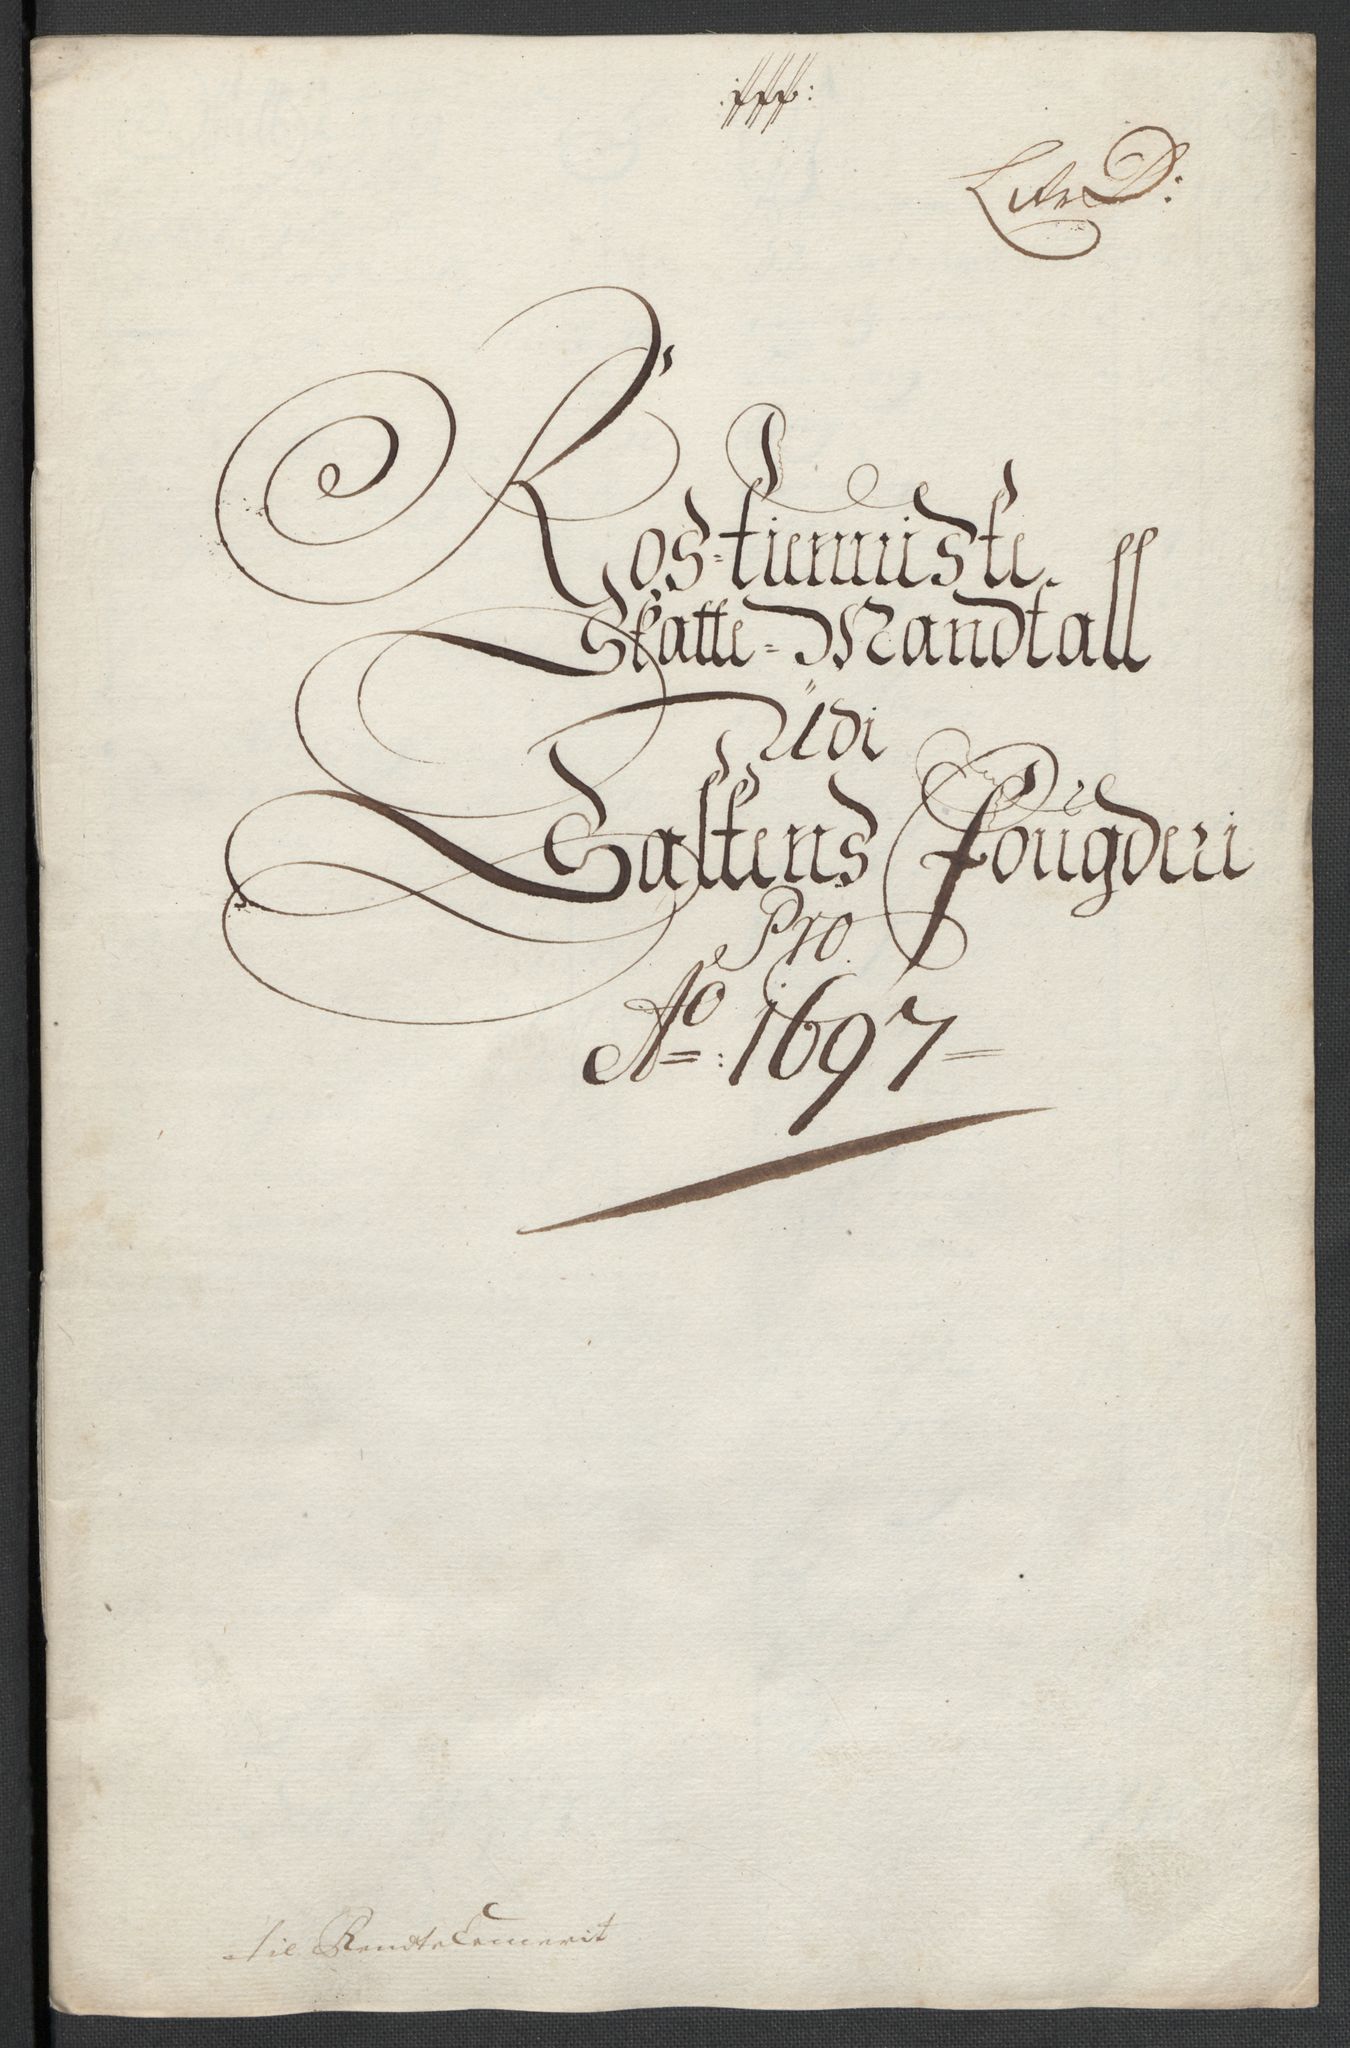 Litr D:
Ros-tienniste
Skatte-Mandtall
Udi
Saltens Fougderi
Pro
Ao: 1697
til RendteCameret